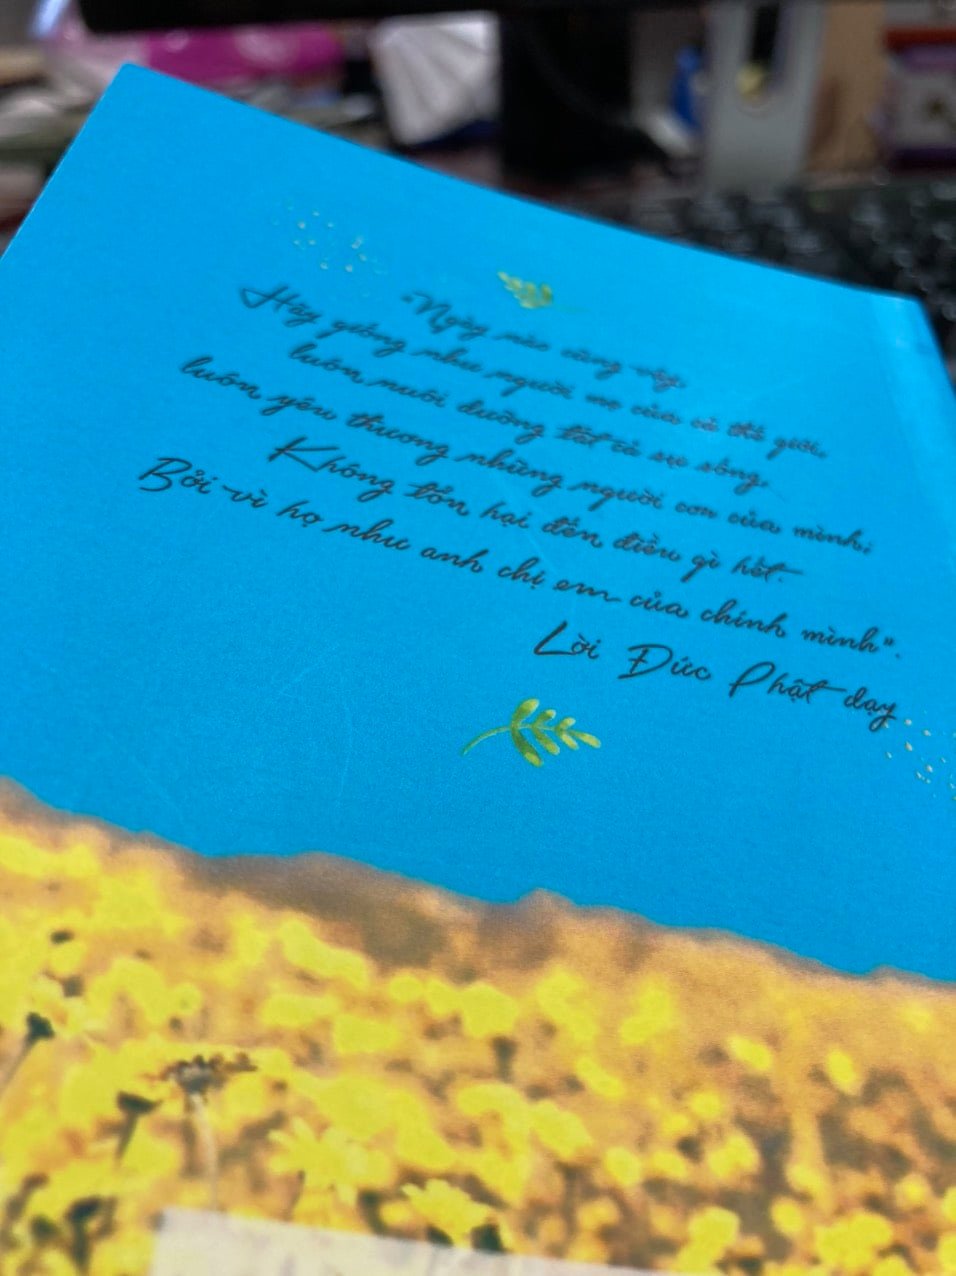 "Ngày nào cũng vậy
Hãy giống như người mẹ của cả thế giới,
luôn nuôi dưỡng tất cả sự sống,
luôn yêu thương những người con của mình;
Không tổn hại đến điều gì hết.
Bởi vì họ như anh chị em của chính mình".
Lời Đức Phật dạy